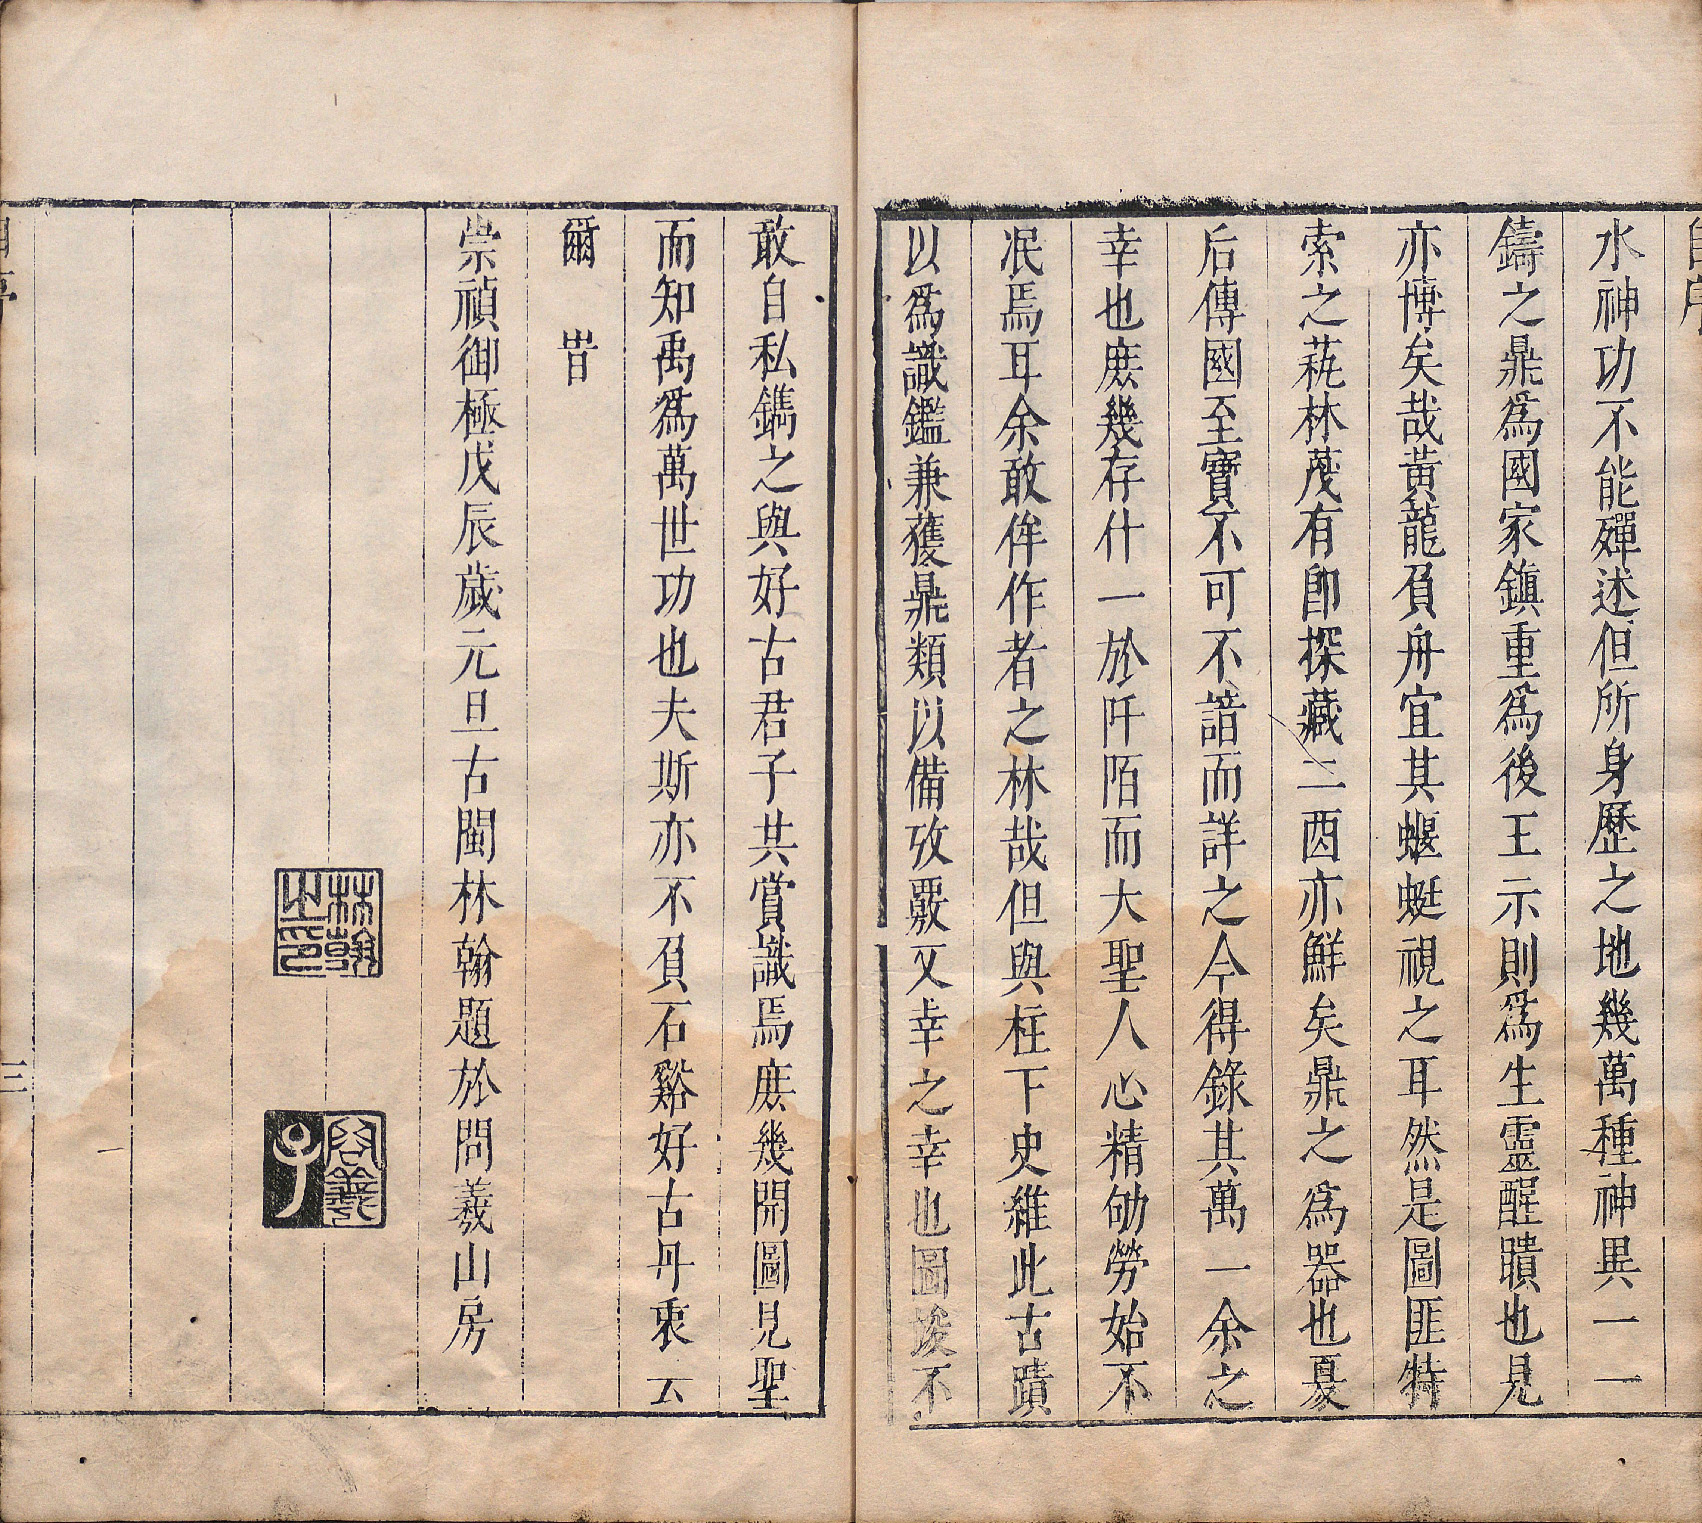 自序
水神功不能殫述但所身歷之地幾萬種神異一一
鑄之鼎爲國家鎮重爲後王示則爲生靈醒瞶也見
亦博矣哉黃龍負舟宜其蝘蜓視之耳然是圖匪特
索之蓺林茂有卽探藏二酉亦鮮矣鼎之爲器也夏
后傳國至寶不可不諳而詳之今得錄其萬一余之
幸也庶幾存什一於阡陌而大聖人心精劬勞始不
泯焉耳余敢侔作者之林哉但與柱下史維此古蹟
以爲識鑑兼蒦鼎類以備攷覈又幸之幸也圖竣不
敢自私鐫之與好古君子共賞識焉庶幾開圖見聖
而知禹爲萬世功也夫斯亦不負石谿好古丹衷云
爾 旹
崇禎御極戊辰歲元旦古閩林翰題於問羲山房
林翰之印
三